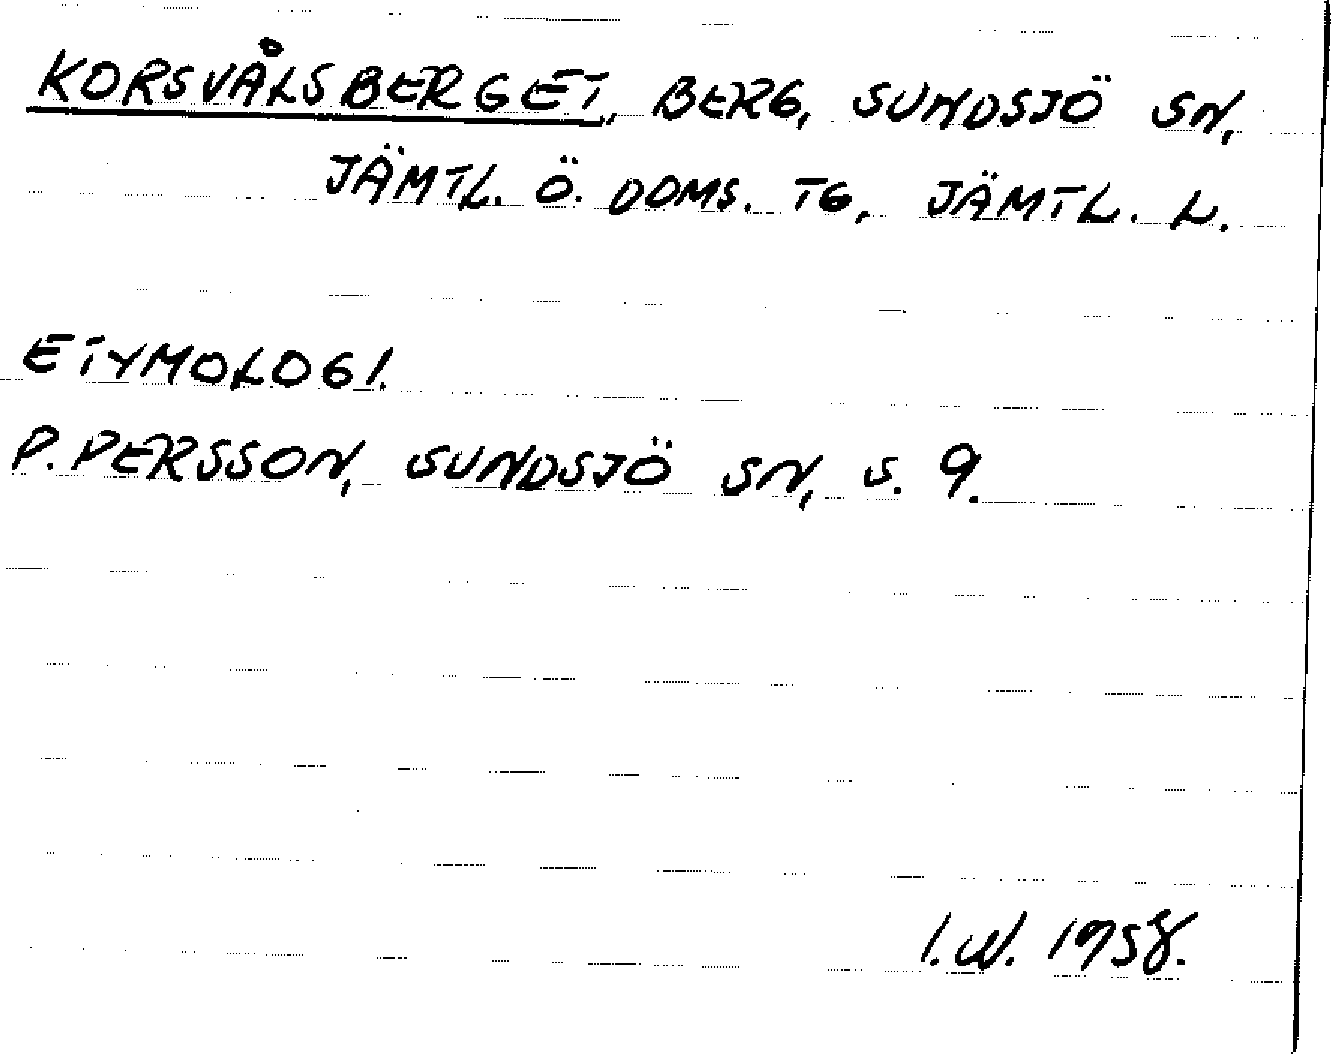 KORSVÅLSBERGET, BERG, SUNDSJÖ SN,
JÄMTL. Ö. DOMS. TG, JÄMTL. L.
ETYMOLOGI.
P. PERSSON, SUNDSJÖ SN, S. 9.
I.W. 1958.